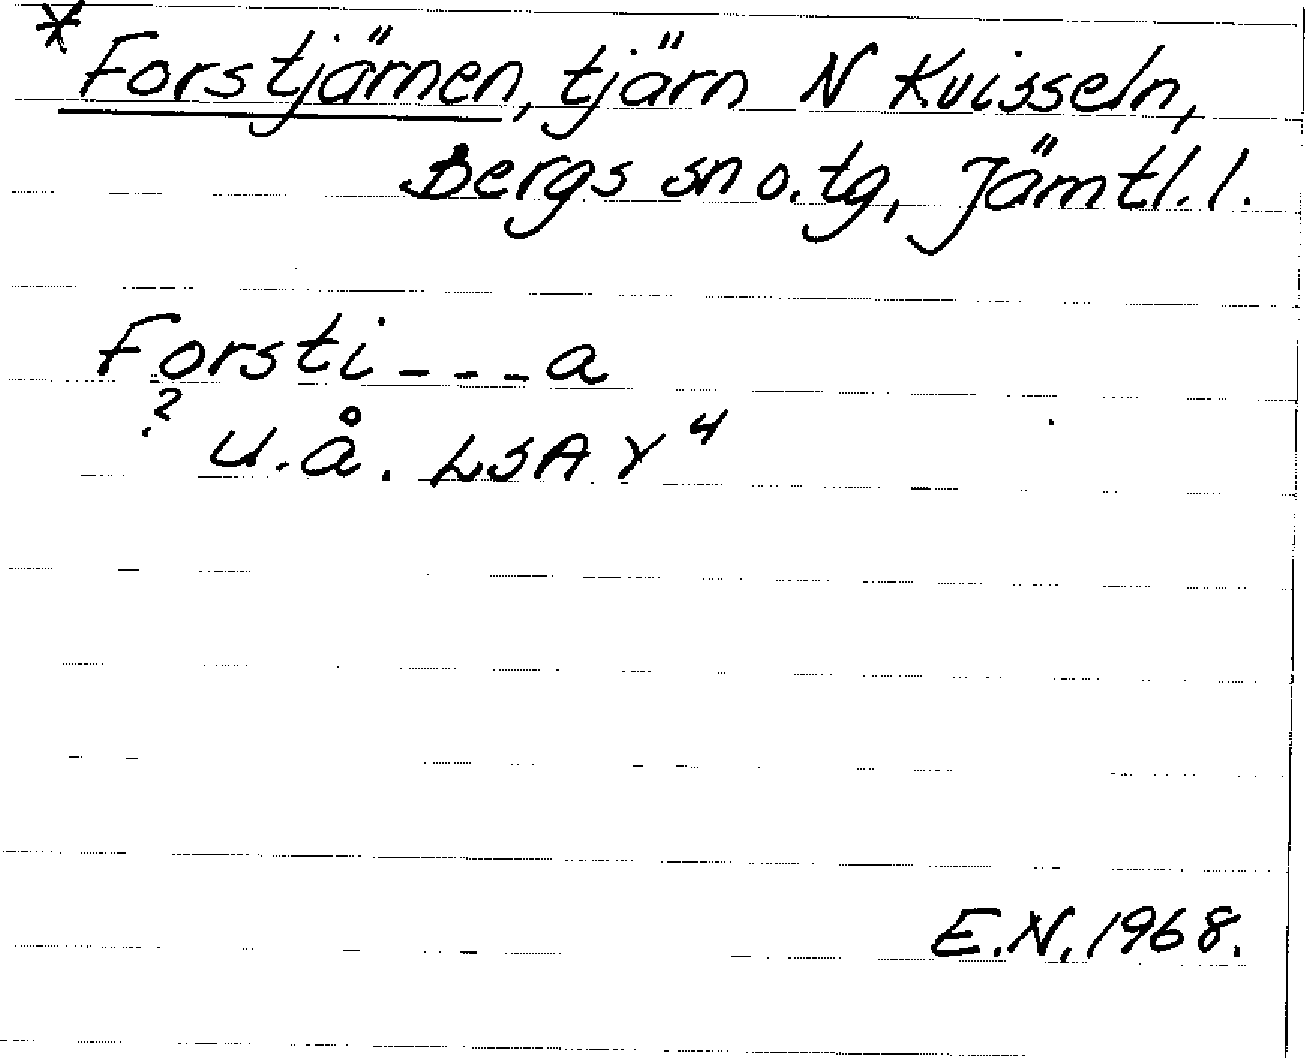 * Forstjärnen, tjärn N Kvisseln,
Bergs sn o. tg, Jämtl. l.
Forsti - - - a
? u.å. LSA Y 4
E.N. 1968.